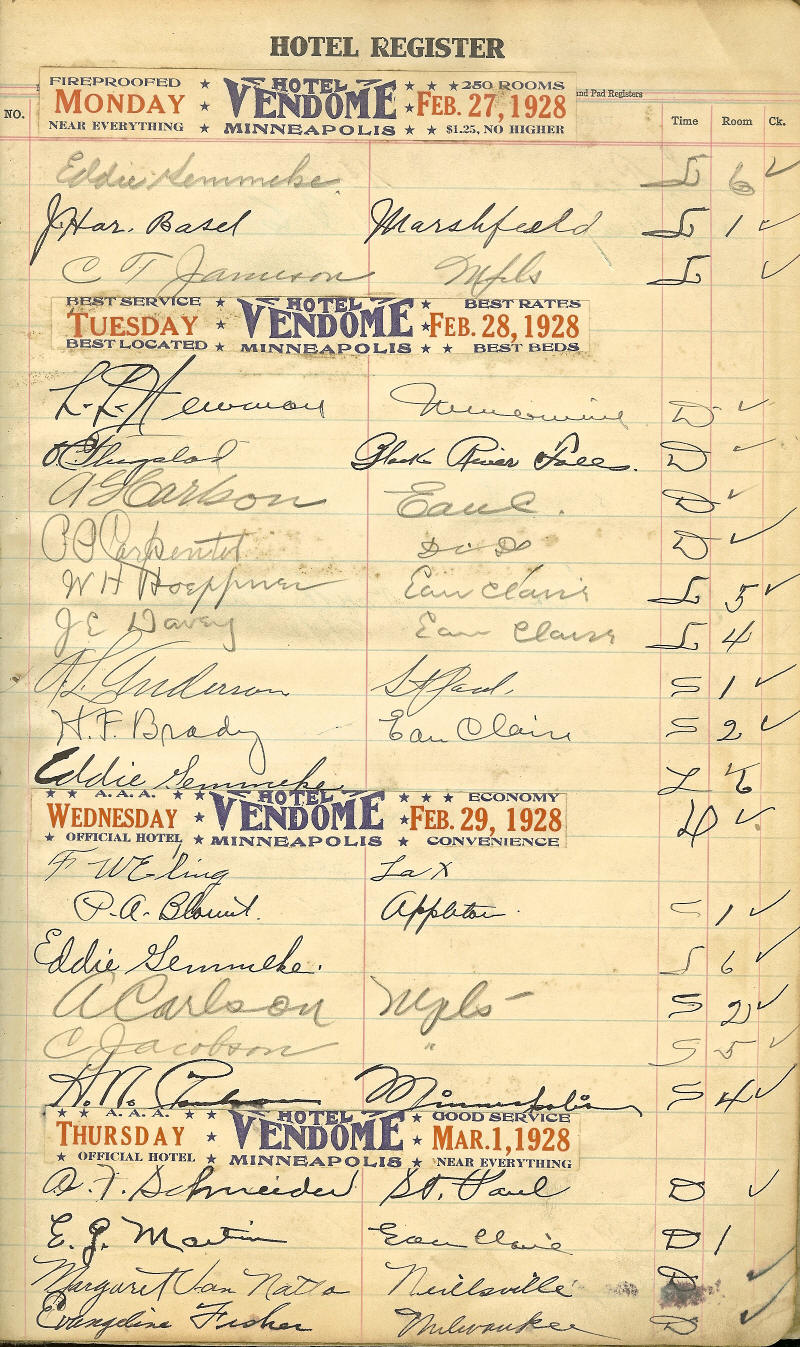 HOTEL REGISTER
and Pad Registers
NO. Time Room Ck.
FIREPROOFED ★ HOTEL ★ ★ ★ 250 ROOMS
MONDAY ★ VENDOME ★ FEB. 27, 1928
NEAR EVERYTHING ★ MINNEAPOLIS ★ ★ $1.25, NO HIGHER
Eddie Gemmeke. L 6 ✓
J Har. Basel Marshfield L 1 ✓
C T Jameson Mpls L ✓
BEST SERVICE ★ HOTEL ★ BEST RATES
TUESDAY ★ VENDOME ★ FEB. 28, 1928
BEST LOCATED ★ MINNEAPOLIS ★ ★ BEST BEDS
L. L. Newman D ✓
Black River Falls. D ✓
A G Carlson Eau C. D ✓
Carpenter D ✓
W H Hoeppner Eau Claire L 5 ✓
J E Davey Eau Claire L 4 ✓
A L Anderson St Paul. S 1 ✓
H. F. Brady Eau Claire S 2 ✓
Eddie Gemmeke L 6
★ ★ A.A.A. ★ ★ HOTEL ★ ★ ★ ECONOMY
WEDNESDAY ★ VENDOME ★ FEB. 29, 1928
★ OFFICIAL HOTEL ★ MINNEAPOLIS ★ CONVENIENCE
✓
F W Eling La X
P. A. Blount. Appleton. S 1 ✓
Eddie Gemmeke. L 6 ✓
A Carlson Mpls – S 2 ✓
C Jacobson " S 5 ✓
H. N. Minneapolis S 4 ✓
★ ★ A.A.A. ★ ★ HOTEL ★ GOOD SERVICE
THURSDAY ★ VENDOME ★ MAR. 1, 1928
★ OFFICIAL HOTEL ★ MINNEAPOLIS ★ NEAR EVERYTHING
A. F. Schneider St. Paul D ✓
E. J. Martin Eau Claire D 1
Margaret Van Natta Neillsville D ✓
Evangeline Fisher Milwaukee D ✓